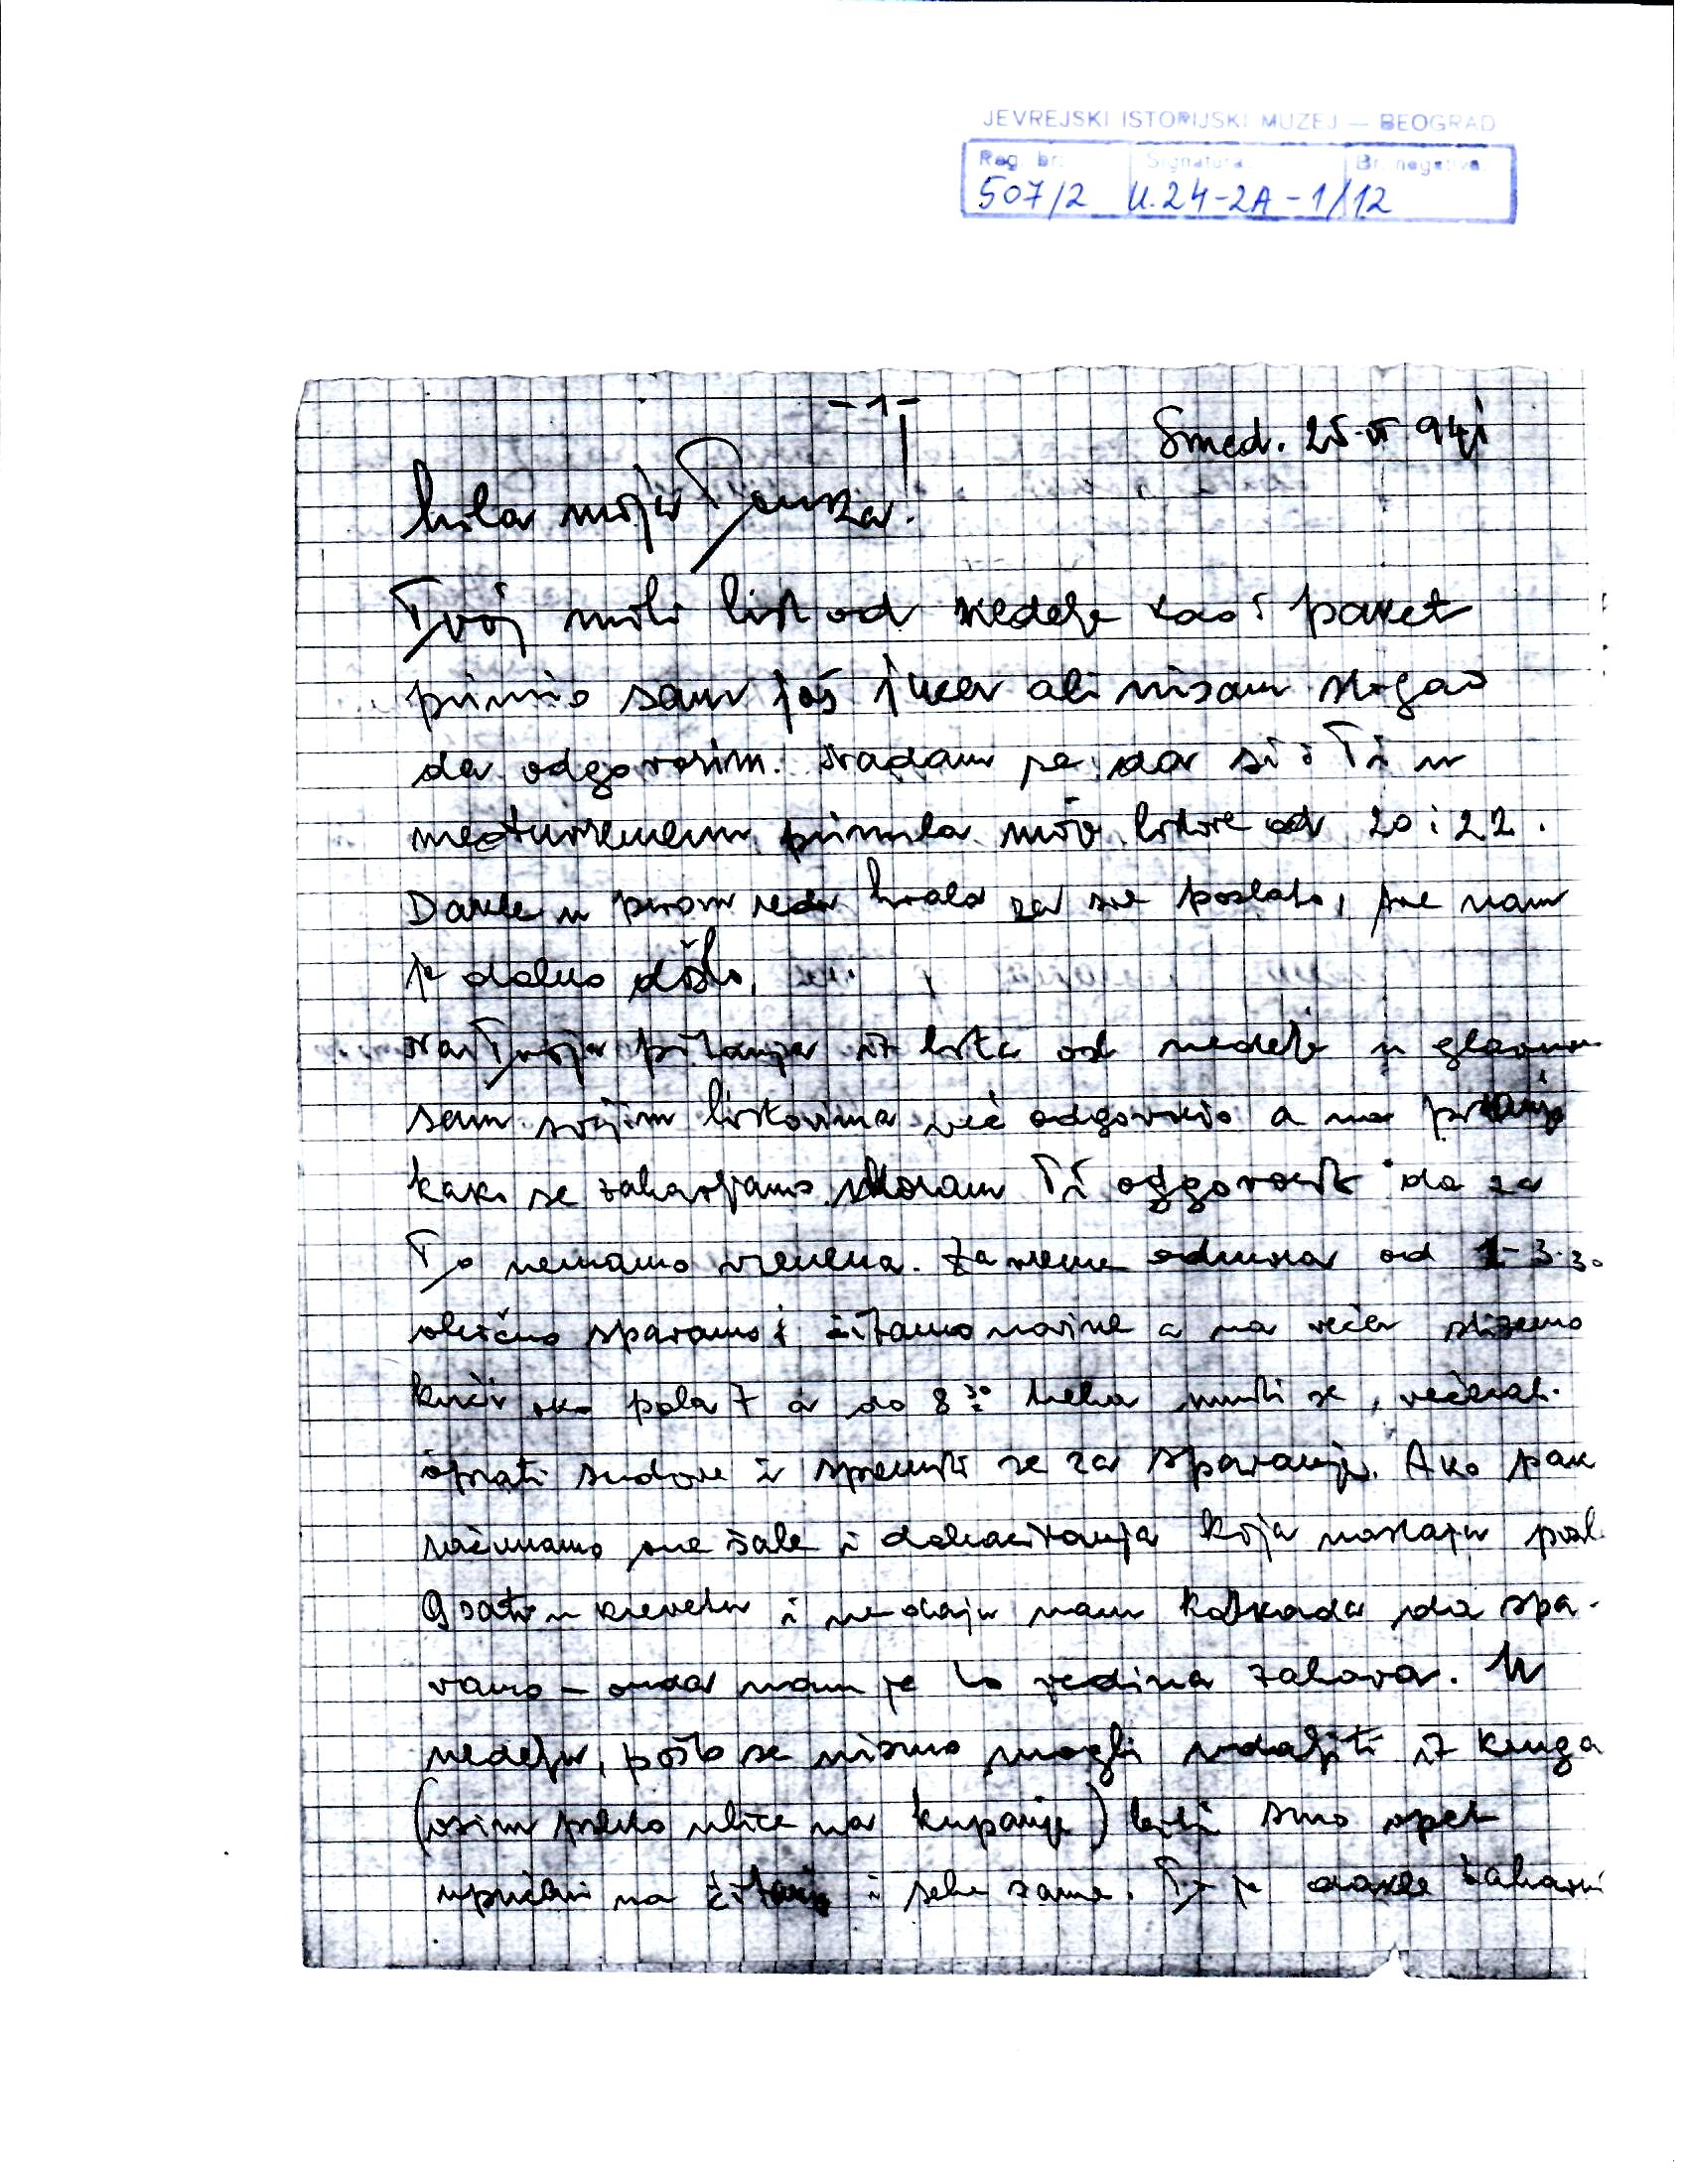 JEVREJSKI ISTORIJSKI MUZEJ — BEOGRAD
Reg. br: Signatura: Br. negativa:
507/2 U.24-2A-1/12
-1-
Smed. 25.VI 941
Mila moja
Tvoj mili list od nedelje kao i paket
primio sam još juče ali nisam mogao
da odgovorim. Nadam se da si i Ti u
međuvremenu primila moje listove od 20 i 22.
Dakle u prvom redu hvala za sve poslato, sve nam
je dobro došlo.
Na Tvoja pitanja iz lista od nedelje u glavnom
sam svojim listovima već odgovorio a na pitanje
kako se zabavljamo moram Ti odgovoriti da za
To nemamo vremena. Za vreme odmora od 1-3.30
obično spavamo i čitamo novine a na veče stižemo
kući oko pola 7 a do 8 30 treba umiti se, večerati
oprati sudove i spremiti se za spavanje. Ako pak
računamo one šale i dobacivanja koja nastaju posle
9 sati u krevetu i ne daju nam katkada da spa-
vamo – onda nam je to jedina zabava. U
nedelju, pošto se nismo mogli udaljiti iz kruga
(osim preko ulice na kupanje) bili smo opet
upućeni na čitanje i sebe same. To je dakle